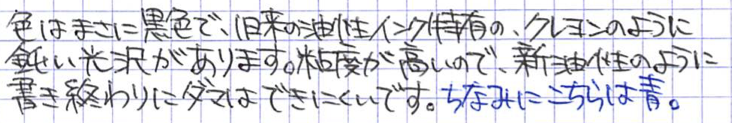 色はまさに黒色で、旧来の油性インク特有の、クレヨンのように
鈍い光沢があります。粘度が高いので、新油性のように
書き終わりにダマはできにくいです。ちなみにこちらは青。